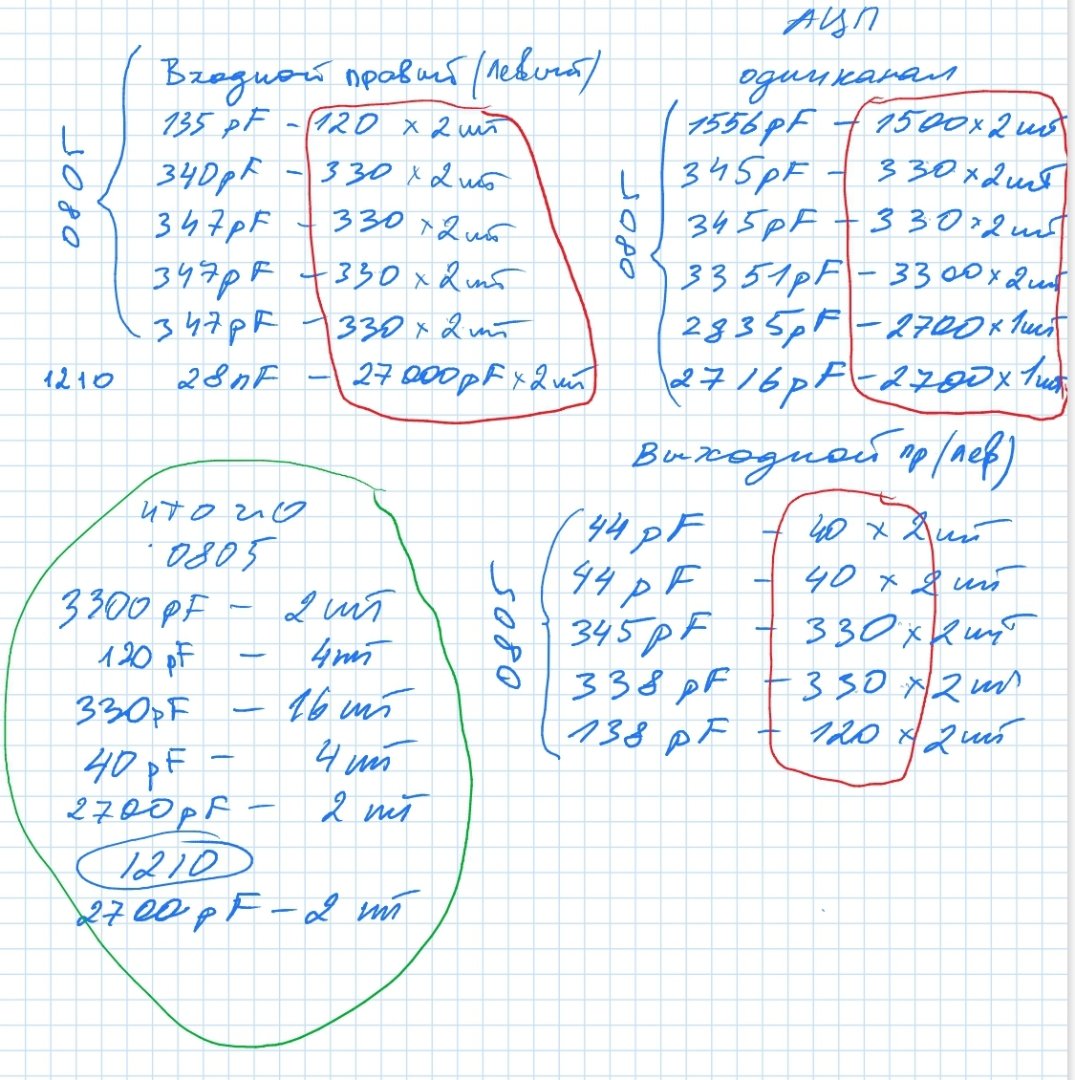 Входной правый (левый)
0805
135 pF - 120 × 2 шт
340 pF - 330 × 2 шт
347 pF - 330 × 2 шт
347 pF - 330 × 2 шт
347 pF - 330 × 2 шт
1210 28 nF - 27000 pF × 2 шт
АЦП
один канал
0805
1556 pF - 1500 × 2 шт
345 pF - 330 × 2 шт
345 pF - 330 × 2 шт
3351 pF - 3300 × 2 шт
2835 pF - 2700 × 1 шт
2716 pF - 2700 × 1 шт
Выходной пр (лев)
0805
44 pF - 40 × 2 шт
44 pF - 40 × 2 шт
345 pF - 330 × 2 шт
338 pF - 330 × 2 шт
138 pF - 120 × 2 шт
итого
0805
3300 pF - 2 шт
120 pF - 4 шт
330 pF - 16 шт
40 pF - 4 шт
2700 pF - 2 шт
1210
2700 pF - 2 шт